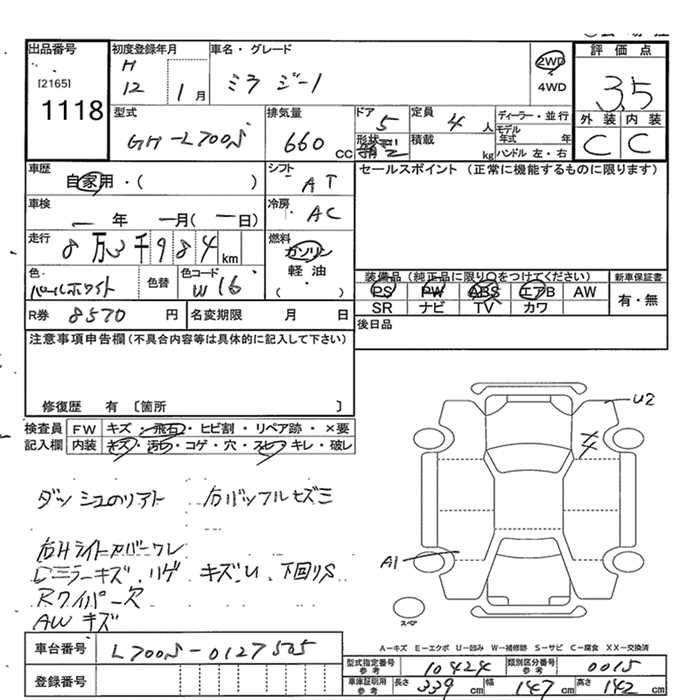 出品番号
[2165]
1118
初度登録年月
H
12 1 月
車名・グレード
ミラ ジーノ
2WD
4WD
評価点
3.5
外装 内装
C C
型式
GH-L700S
排気量
660 cc
ドア
5
形状
定員
4 人
積載
kg
ディーラー・並行
モデル年式 年
ハンドル 左・右
車歴
自家用・( )
シフト
AT
セールスポイント (正常に機能するものに限ります)
車検
年 月(一日)
冷房
AC
走行
8万3千984km
燃料
ガソリン
軽油
( )
色
パールホワイト
色替
色コード
W16
装備品(純正品に限り○をつけてください)
PS PW ABS エアB AW
SR ナビ TV カワ
新車保証書
有・無
R券 8570 円
名変期限 月 日
後日品
注意事項申告欄(不具合内容等は具体的に記入して下さい)
修復歴 有 〔箇所 〕
検査員 FW キズ・飛石・ヒビ割・リペア跡・×要
記入欄 内装 キズ・汚れ・コゲ・穴・スレ・キレ・破レ
U2
A1
スペア
Rワイパー欠
AWキズ
A−キズ E−エクボ U−凹み W−補修跡 S−サビ C−腐食 XX−交換済
車台番号 L700S-0127505
型式指定番号 参考 10424 類別区分番号 参考 0015
登録番号
車庫証明用 参考 長さ 339 cm 幅 147 cm 高さ 142 cm